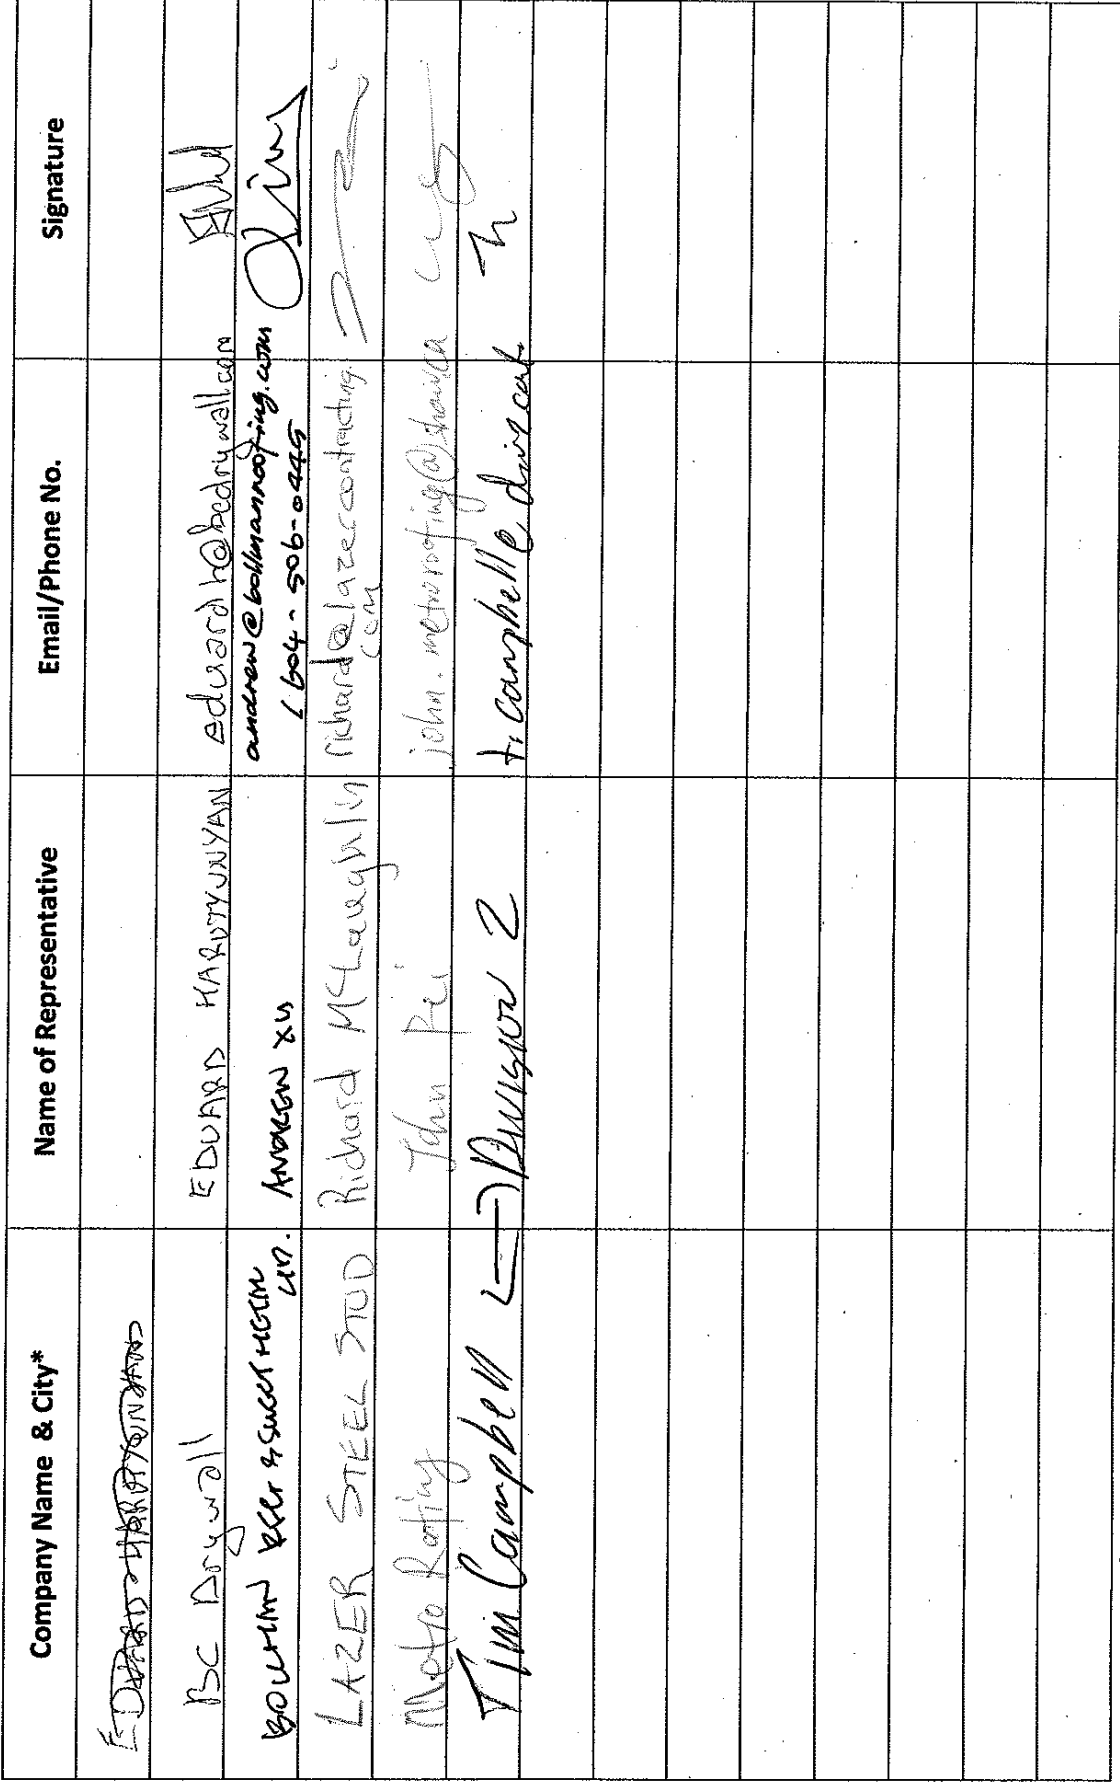 Company Name & City*
Name of Representative
Email/Phone No.
Signature
BC Drywall
EDUARD HARUTYUNYAN
eduardh@bcdrywall.com
ANDREW XU
andrew@bollmanroofing.com
604-506-0445
LAZER STEEL STUD
Richard McLaughlin
richard@lazercontracting.
com
Metro Roofing
John
john.metroroofing@shaw.ca
Tim Campbell
Division 2